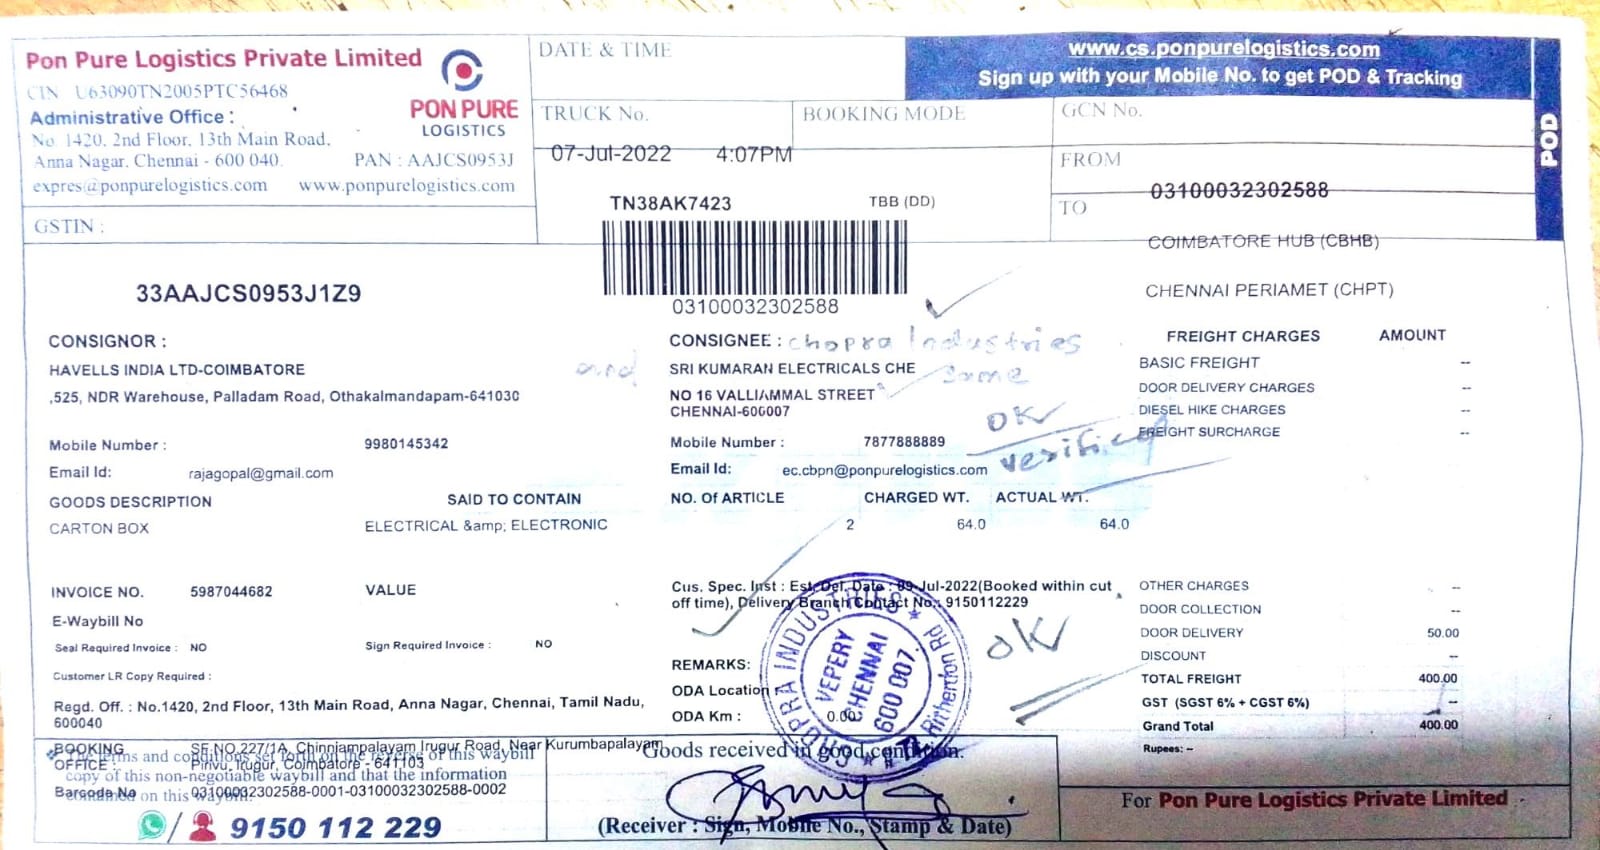 Pon Pure Logistics Private Limited
CIN U63090TN2005PTC56468
Administrative Office :
No. 1420, 2nd Floor, 13th Main Road,
Anna Nagar, Chennai - 600 040.
PAN : AAJCS0953J
expres@ponpurelogistics.com www.ponpurelogistics.com
PON PURE
LOGISTICS
GSTIN :
33AAJCS0953J1Z9
DATE & TIME
TRUCK No.
BOOKING MODE
07-Jul-2022 4:07PM
TN38AK7423
TBB (DD)
03100032302588
www.cs.ponpurelogistics.com
Sign up with your Mobile No. to get POD & Tracking
POD
GCN No.
FROM
03100032302588
TO
COIMBATORE HUB (CBHB)
CHENNAI PERIAMET (CHPT)
CONSIGNOR :
HAVELLS INDIA LTD-COIMBATORE
,525, NDR Warehouse, Palladam Road, Othakalmandapam-641030
Mobile Number : 9980145342
Email Id: rajagopal@gmail.com
GOODS DESCRIPTION SAID TO CONTAIN
CARTON BOX ELECTRICAL &amp; ELECTRONIC
CONSIGNEE : Chopra Industries
and SRI KUMARAN ELECTRICALS CHE
same
NO 16 VALLIAMMAL STREET
CHENNAI-600007
OK
verified
Mobile Number : 7877888889
Email Id: ec.cbpn@ponpurelogistics.com
NO. Of ARTICLE CHARGED WT. ACTUAL WT.
2 64.0 64.0
FREIGHT CHARGES AMOUNT
BASIC FREIGHT --
DOOR DELIVERY CHARGES --
DIESEL HIKE CHARGES --
FREIGHT SURCHARGE --
INVOICE NO. 5987044682 VALUE
E-Waybill No
Seal Required Invoice : NO Sign Required Invoice : NO
Customer LR Copy Required :
Regd. Off. : No.1420, 2nd Floor, 13th Main Road, Anna Nagar, Chennai, Tamil Nadu,
600040
Cus. Spec. Inst : Est. Del. Date : 09-Jul-2022(Booked within cut
off time), Delivery Branch Contact No.: 9150112229
OK
REMARKS:
ODA Location
ODA Km : 0.00
CHOPRA INDUSTRIES
Ritherdon Rd
VEPERY
CHENNAI
600 007.
OTHER CHARGES --
DOOR COLLECTION --
DOOR DELIVERY 50.00
DISCOUNT --
TOTAL FREIGHT 400.00
GST (SGST 6% + CGST 6%) --
Grand Total 400.00
Rupees: --
BOOKING OFFICE : SF.NO.227/1A, Chinniampalayam Irugur Road, Near Kurumbapalayam
Pirivu, Irugur, Coimbatore - 641103
terms and conditions set forth on the reverse of this waybill
copy of this non-negotiable waybill and that the information
contained on this waybill.
Barcode No 03100032302588-0001-03100032302588-0002
9150 112 229
Goods received in good condition.
(Receiver : Sign, Mobile No., Stamp & Date)
For Pon Pure Logistics Private Limited